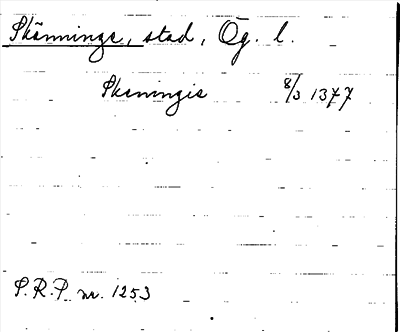 Skänninge, stad, Ög. l.
Skeningie 8/3 1377
S.R.P. nr. 1253